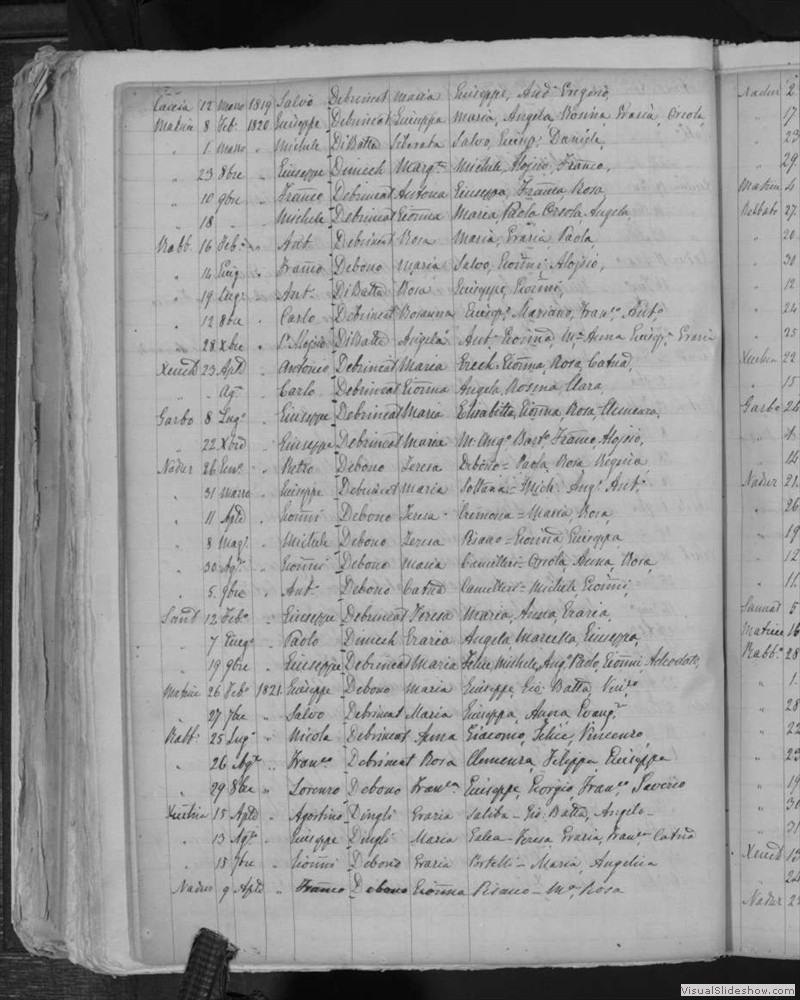 Caccia 12 Marzo 1819 Salvo Debrincat Maria Giuseppe, And. Gregorio,
Matrice 8 Feb. 1820 Giuseppe Debrincat Giuseppa Maria, Angela, Rosina, Grazia, Orsola,
" 1 Marzo " Michele DiBatta Liberata Salvo, Giusp. Daniele,
" 23 8bre " Giuseppe Dimech Marg.ta Michele, Aloisio, Franco,
" 10 9bre " Franco Debrincat Antona Giuseppa, Franca, Rosa,
" 18 " " Michele Debrincat Gionna Maria, Paola, Orsola, Angela,
Rabb. 16 Feb. " Ant. Debrincat Rosa Maria, Grazia, Paola,
" 14 Giug. " Franco Debono Maria Salvo, Gionni, Aloisio,
" 19 Lug. " Ant. DiBatta Rosa Giuseppe, Gionni,
" 12 8bre " Carlo Debrincat Rosanna Giusp. Mariano, Fran.co Ant.o
" 28 Xbre " Aloisio DiBatta Angela Ant. Gionna, M.a Anna, Giusp. Grazia
Xeuch. 23 Aple " Antonio Debrincat Maria Gionna, Rosa, Catna,
" " Ag. " Carlo Debrincat Gionna Angela, Rosina, Clara,
Garbo 8 Lug.o " Giuseppe Debrincat Maria Elisabetta, Gionna, Rosa, Clemenza,
" 22 Xbre " Giuseppe Debrincat Maria M. Ang.o Bart.o Franco, Aloisio,
Nadur 26 Gen. " Pietro Debono Teresa Debono = Paola, Rosa, Regina
" 31 Marzo " Giuseppe Debrincat Maria Soltana = Mich. Ang. Ant.
" 11 Aple " Gionni Debono Teresa Cremona = Maria, Rosa,
" 8 Mag. " Michele Debono Teresa Pisano = Gionna, Giuseppa,
" 30 Ag. " Gionni Debono Maria Camilleri = Orsola, Anna, Rosa,
" 5 9bre " Ant. Debono Catna Camilleri = Michele, Gionni,
Sant 12 Feb.o " Giuseppe Debrincat Teresa Maria, Anna, Grazia,
" 7 Giug.o " Paolo Dimech Grazia Angela, Marcella, Giuseppa,
" 19 9bre " Giuseppe Debrincat Maria Felice, Michele, Ang.o Paolo, Gionni, Adeodato,
Matrice 26 Feb.o 1821 Giuseppe Debono Maria Giuseppe, Gio. Batta, Vin.zo
" 27 7bre " Salvo Debrincat Maria Giuseppa, Anna, Evang.
Rabb. 25 Lug.o " Nicola Debrincat Anna Giacomo, Felice, Vincenzo,
" 26 Ag. " Fran.co Debrincat Rosa Clemenza, Filippa, Giuseppa
" 29 8bre " Lorenzo Debono Fran.ca Giuseppe, Giorgio, Fran.co Saverio
Xeuchia 15 Aple " Agostino Dingli Grazia Saliba = Gio. Batta, Angelo =
" 13 Ag. " Giuseppe Dingli Maria Galea = Teresa, Grazia, Fran.ca Catna
" 18 7bre " Gionni Debono Grazia Portelli = Maria, Angelica
Nadur 9 Aple " Franco Debono Gionna Pisano = M.a Rosa
Nadur 2
" 17
" 23
" 29
Matrice 4
Rabbato 27
" 20
" 30
" 12
" 24
" 25
Xeuchia 22
" 15
Garbo 24
" 14
Nadur 21
" 26
" 19
" 12
" 11
Sannat 5
Matrice 16
Rabb.o 28
" 1
" 28
" 22
" 23
" 19
" 30
" 31
Xeuch. 13
" 24
Nadur
VisualSlideshow.com